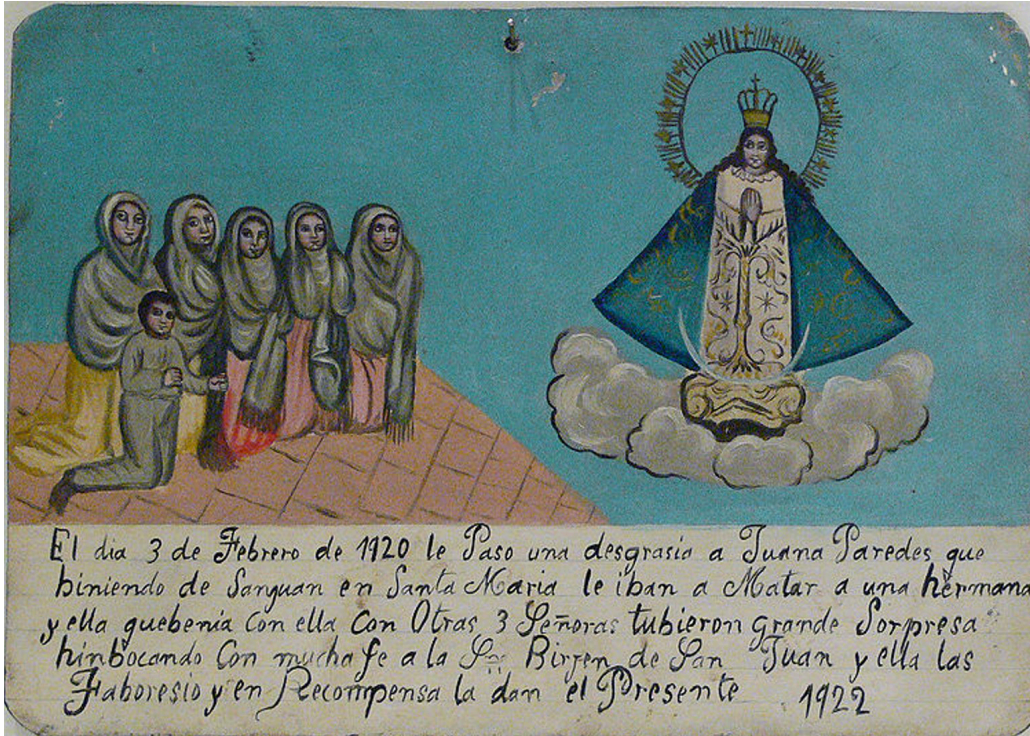 El dia 3 de Febrero de 1920 le Paso una desgrasia a Juana Paredes que
biniendo de Sanjuan en Santa Maria le iban a Matar a una hermana
y ella quebenia Con ella Con Otras 3 Señoras tubieron grande Sorpresa
hinbocando Con mucha fe a la Sm̃a Birjen de San Juan y ella las
Faboresio y en Recompensa la dan el Presente 1922